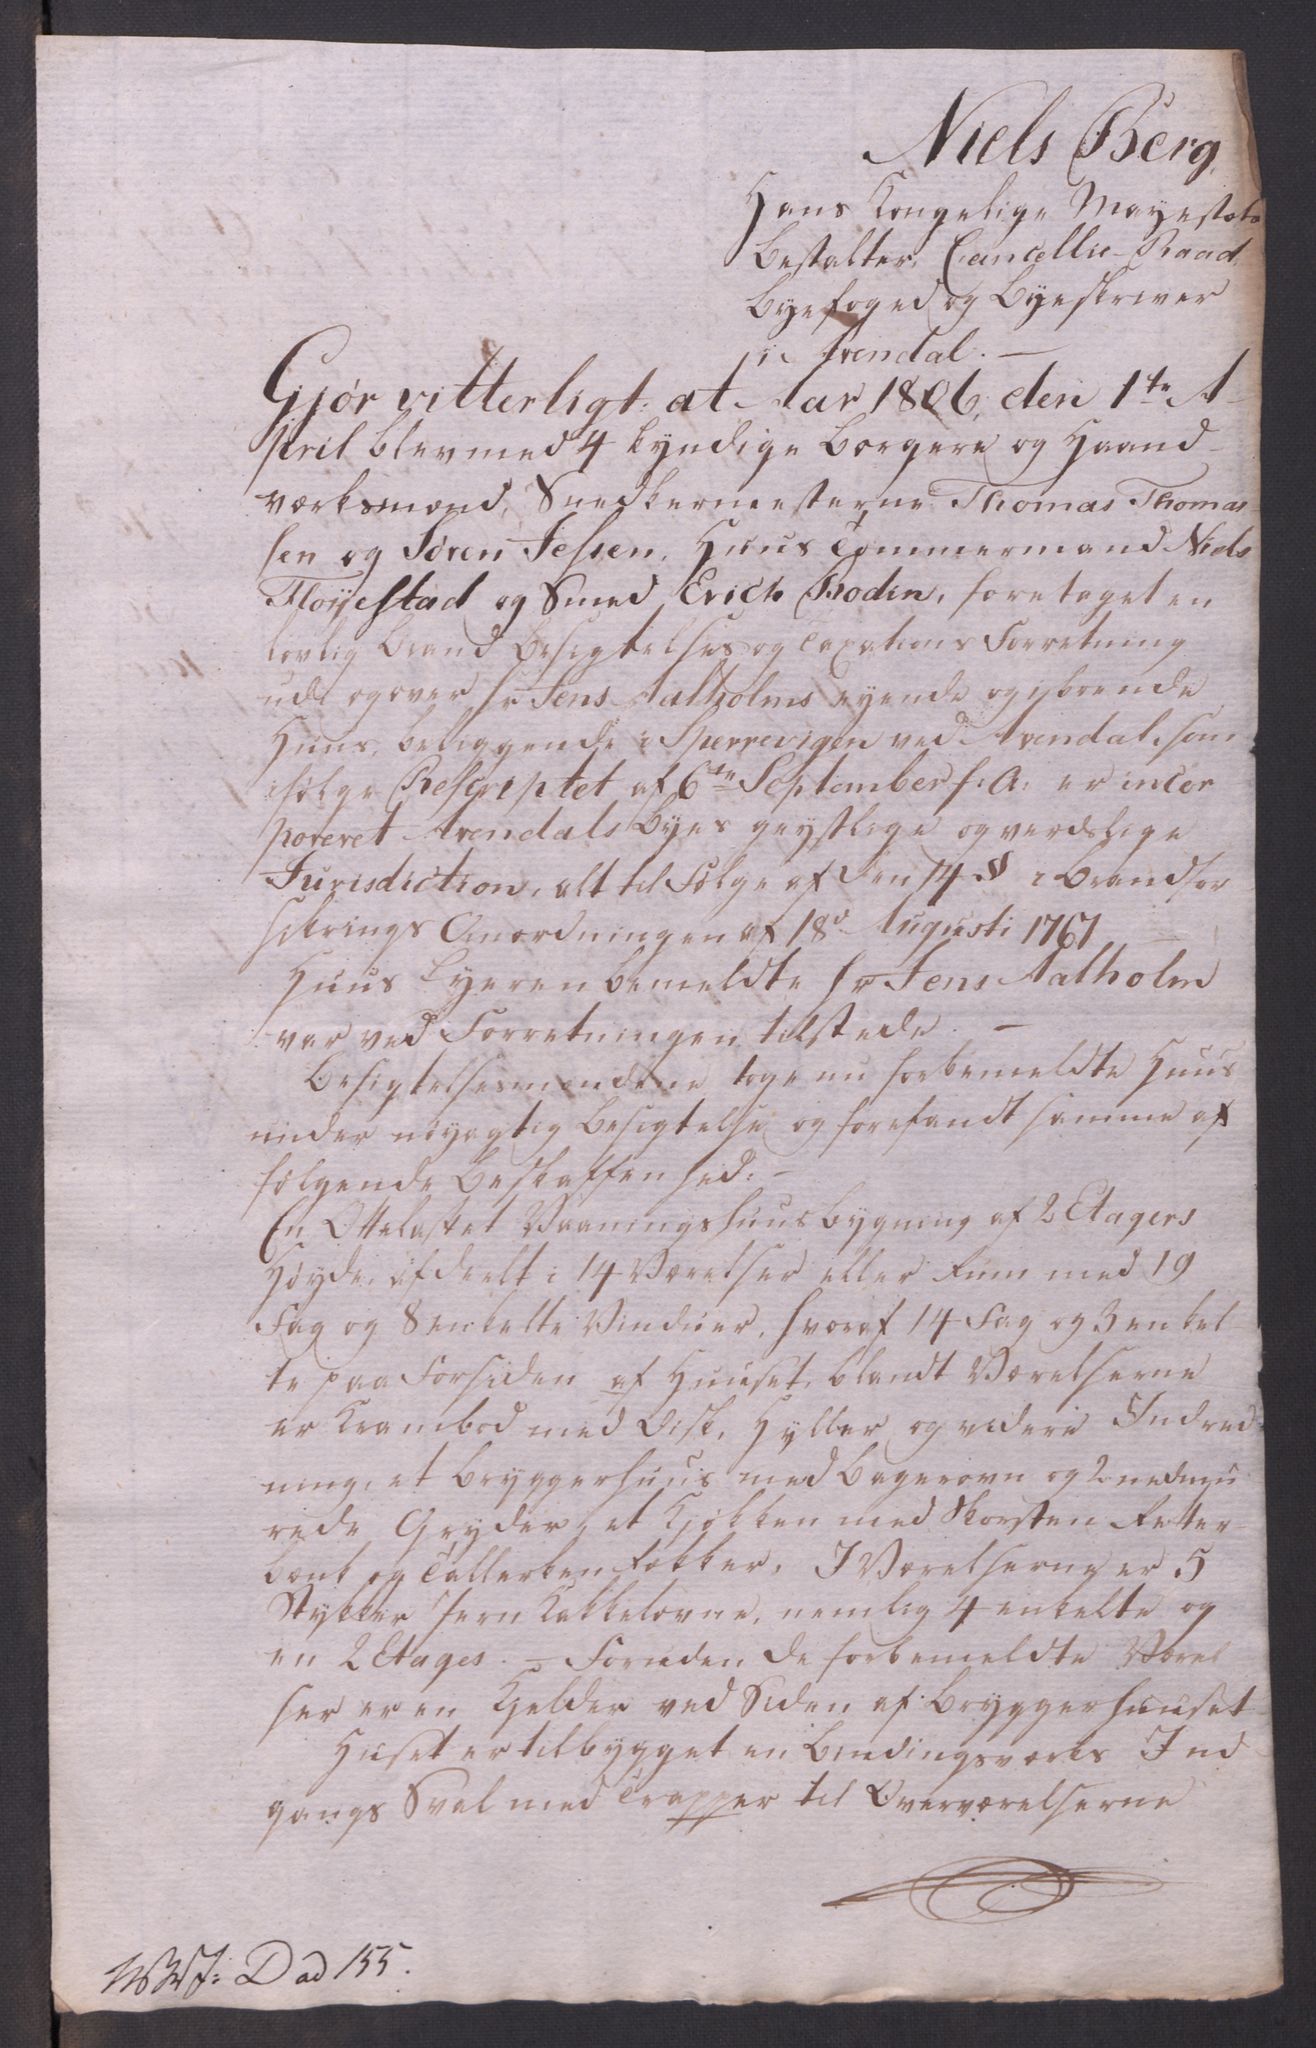 Niels Berg,
Hans Kongelige Mayestæts
Bestalter, Cancellie-Raad,
Byefoged og Byeskriver
i Arendal. —
Gjør vitterligt: at Aar 1806, den 1te A-
pril blev med 4 kyndige Borgere og Haand-
værksmænd, Snedkermesterne Thomas Thomas-
sen og Søren Jessen, Huus Tømmermand Niels
Fløyestad og Smed Erich Bodin, foretaget en
lovlig Brand Besigtelses og Taxations Forretning
udi og over Hr Jens Aalholms eyende og iboende
Huus, beliggende i Sperrevigen ved Arendal, som
ifølge Rescriptet af 6te September f: A: er incor-
poreret Arendals Byes geystlige og verdslige
Jurisdiction, alt til Følge af den 14 § i Brandfor-
sikrings Anordningen af 18de Augusti 1767
Huus Eyeren bemeldte Hr Jens Aalholm
var ved Forretningen tilstede. —
Besigtelsesmændene toge nu forbemeldte Huus
under nøyagtig Besigtelse og forefandt samme af
følgende Beskaffenhed: —
En Ottelaftet Vaaningshuusbygning af 2 Etagers
Høyde, afdeelt i 14 Værelser eller Rum med 19
Fag og 8 enkelte Vinduer, hvoraf 14 Fag og 3 enkel-
te paa Forsiden af Huuset, blandt Værelserne
er Krambod med Disk, Hyller og videre Indred-
ning, et Bryggerhuus med Bagerovn og 2 nedmu-
rede Gryder, et Kjøkken med Skorsten Retter-
bænk og Tallerken Rækker, I Værelserne er 5
Stykker Jern Kakkelovne, nemlig 4 enkelte og
en 2 Etages. — Foruden de forbemeldte Værel-
ser er en Kjelder ved Siden af Bryggerhuuset
Huset er tilbygget en Bindingsværks Ind-
gangs Sval med Trapper til Overværelserne
Dad 155.